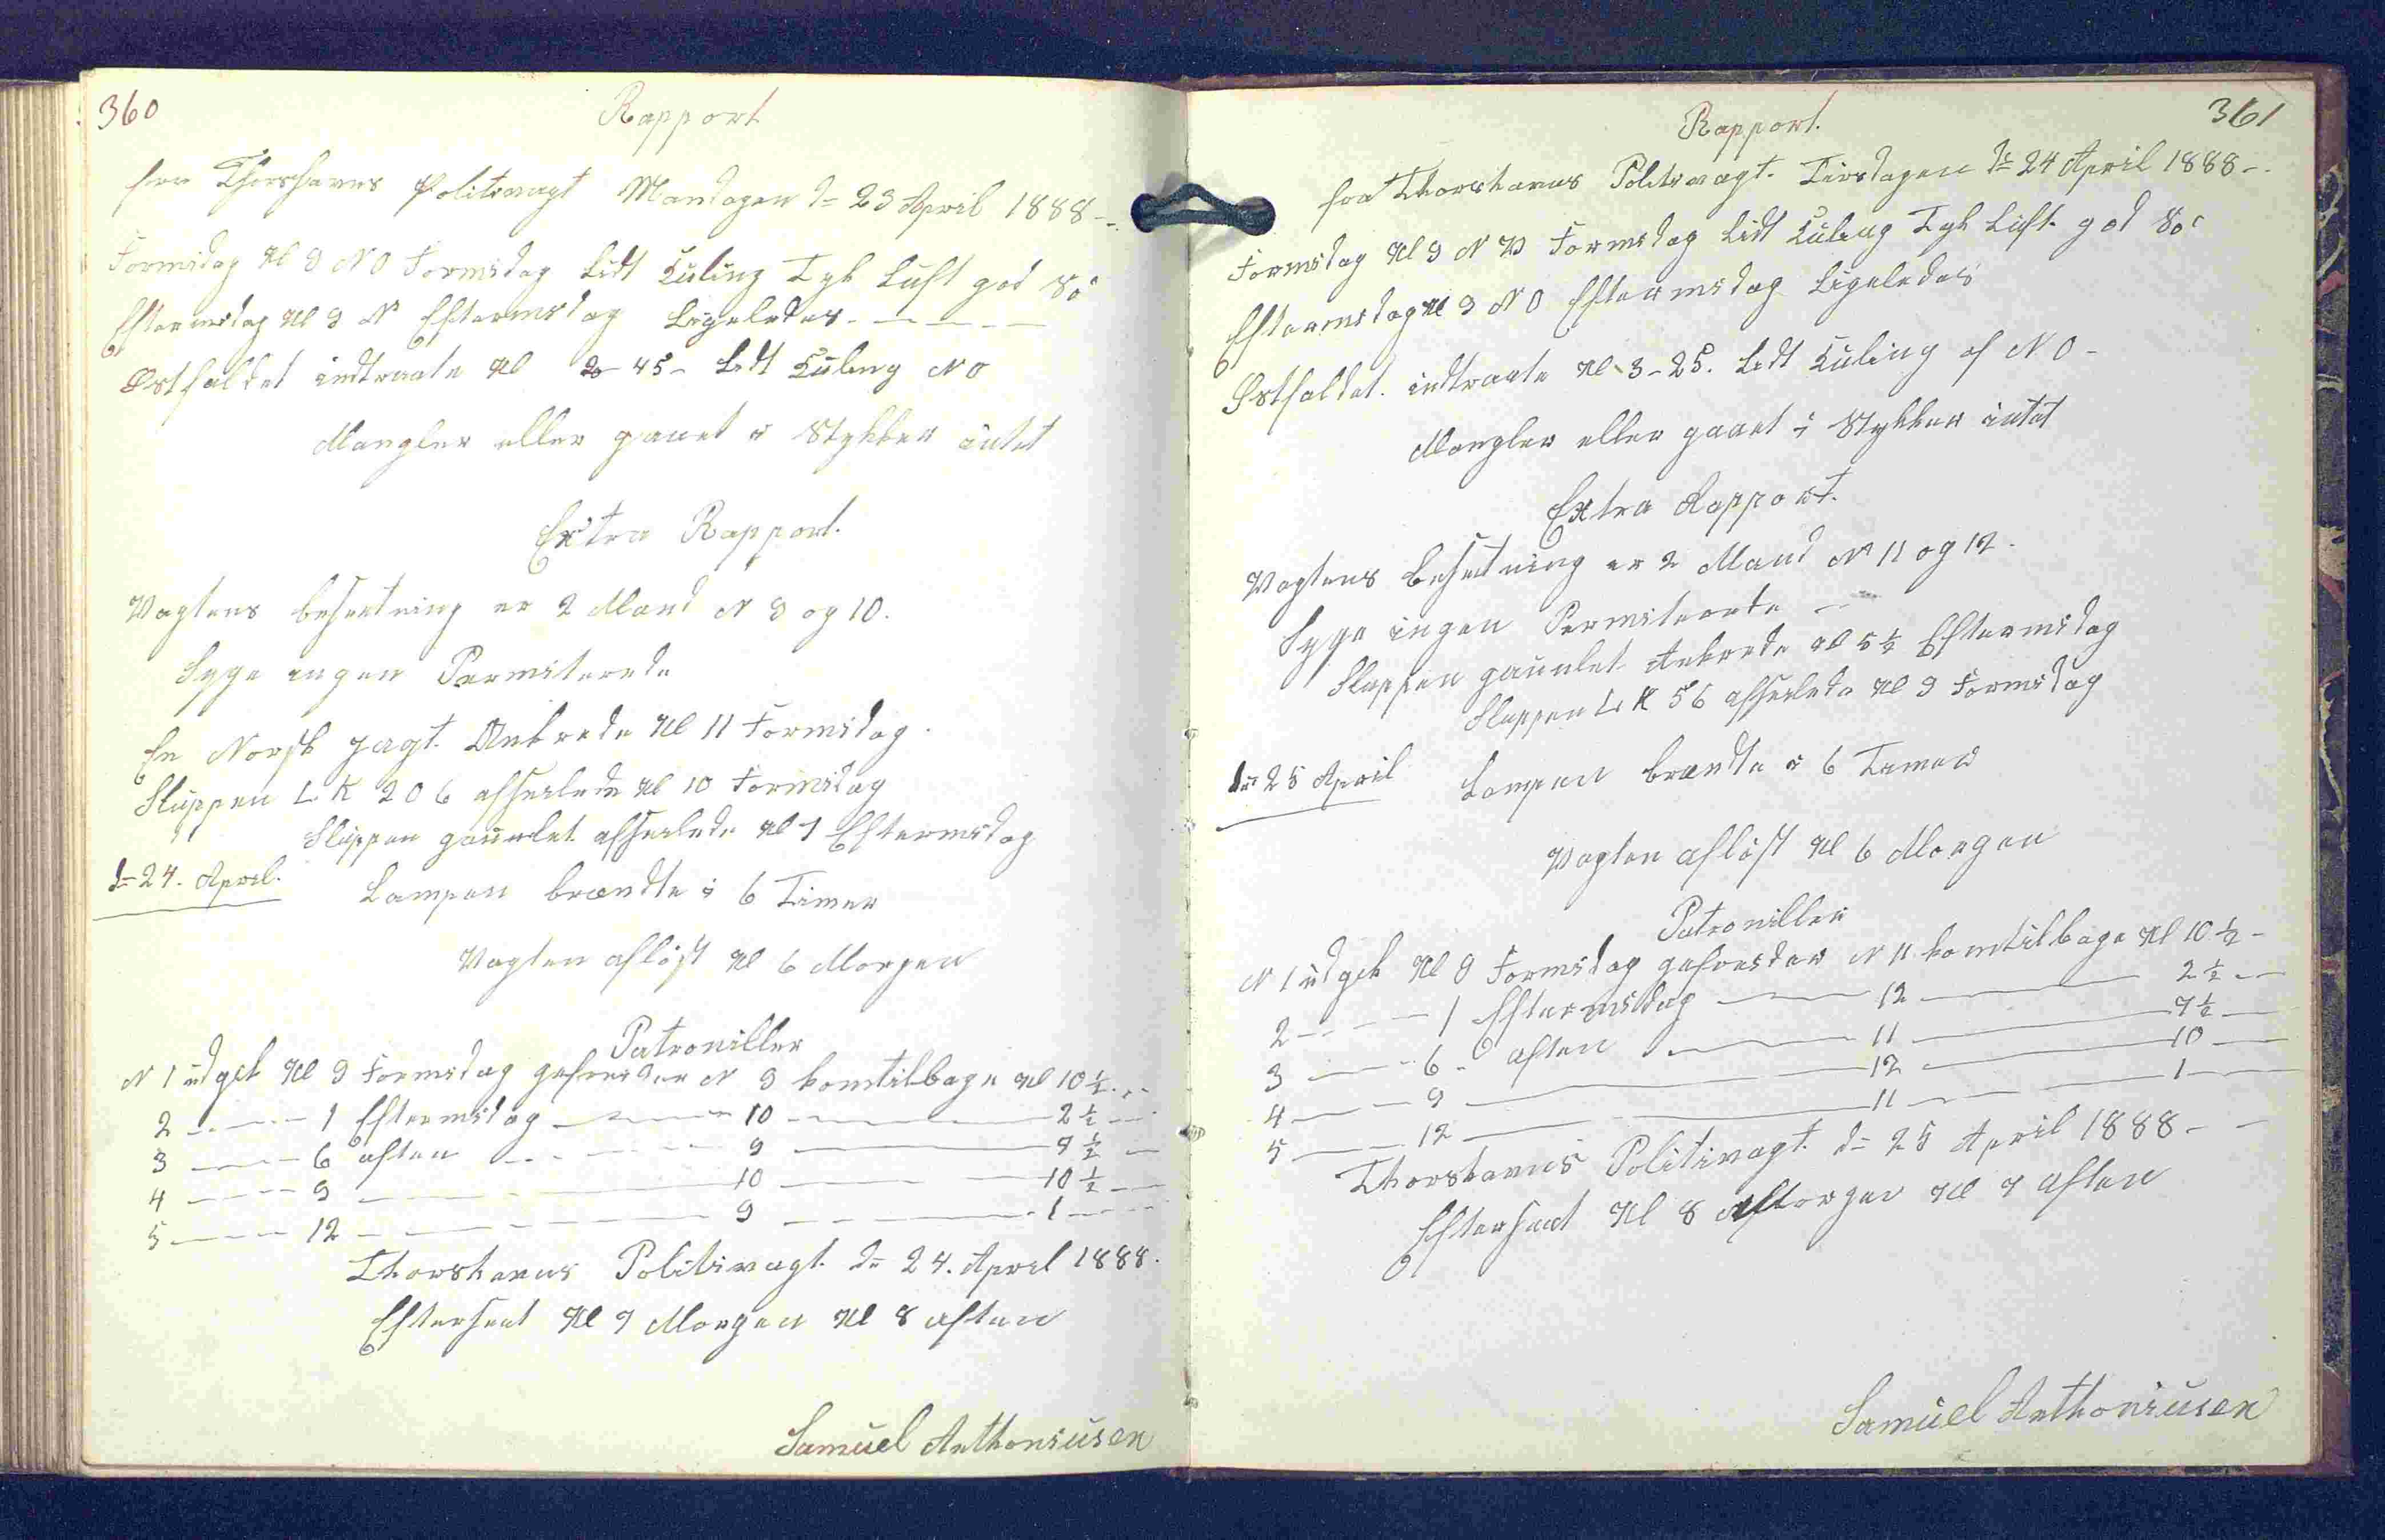 360
Rapport
fra Thorshavns Politivagt Mandagen d= 23 April 1888 -
Formidag Kl 9 N O Formidag Lidt Kuling Tyk Luft god Sø
Eftermidag Kl 3 N Eftermidag Ligeledes - - - -
Østfaldet indtraate Kl 2-45 - Lidt Kuling N O
Mangler eller gaaet i Stykker intet
Extra Rapport.
Vagtens besætning er 2 Mand N 9 og 10.
Syge ingen Permiterede
En Norsk Jagt. Ankrede Kl 11 Formidag.
Sluppen L. K 206 afseilede Kl 10 Formidag
Sluppen gauntlet afseilede Kl 7 Eftermidag
d= 24. April.
Lampen brændte i 6 Timer
Vagten afløst Kl 6 Morgen
Patroniller
N 1 udgik Kl 9 Formidag gefreider N 9 komtilbage Kl 10 ½ - -
2 - - - 1 Eftermidag - - - 10 - - - 2 ½ - -
3 - - - 6 aften - - - 9 - - - 7 ½ -
4 - - - 9 - - - 10 - - - 10 ½ - -
5 - - - 12 - - - 9 - - - 1 - - -
Thorshavns Politivagt. d= 24. April 1888.
Efterseet Kl 7 Morgen Kl 8 aften
Samuel Anthoniusen
361
Rapport.
fra Thorshavns Politivagt. Tirsdagen d= 24 April 1888 - .
Formidag Kl 9 N V Formidag Lidt Kuling Tyk Luft god Sø
Eftermidag Kl 3 N O Eftermidag Ligeledes
Østfaldet. indtraate Kl 3-25. Lidt Kuling af N O -
Mangler eller gaaet i Stykker intet
Extra Rapport.
Vagtens Besætning er 2 Mand N 11 og 12.
Syge ingen Permiterede -
Sluppen gauntlet Ankrede Kl 5 ½ Eftermidag
Sluppen L. K 56 afseilede Kl 9 Formidag
d= 25 April
Lampen brændte i 6 Timer
Vagten afløst Kl 6 Morgen
Patroniller
N 1 udgik Kl 9 Formidag gefreider N 11 komtilbage Kl 10 ½ -
2 - - - 1 Eftermidag - - - 12 - - - 2 ½ - -
3 - - - 6 - aften - - - 11 - - - 7 ½ -
4 - - - 9 - - - 12 - - - 10 -
5 - - - 12 - - - 11 - - - 1 - -
Thorshavns Politivagt. d= 25 April 1888 - -
Efterseet Kl 8 Morgen Kl 7 aften
Samuel Anthoniusen